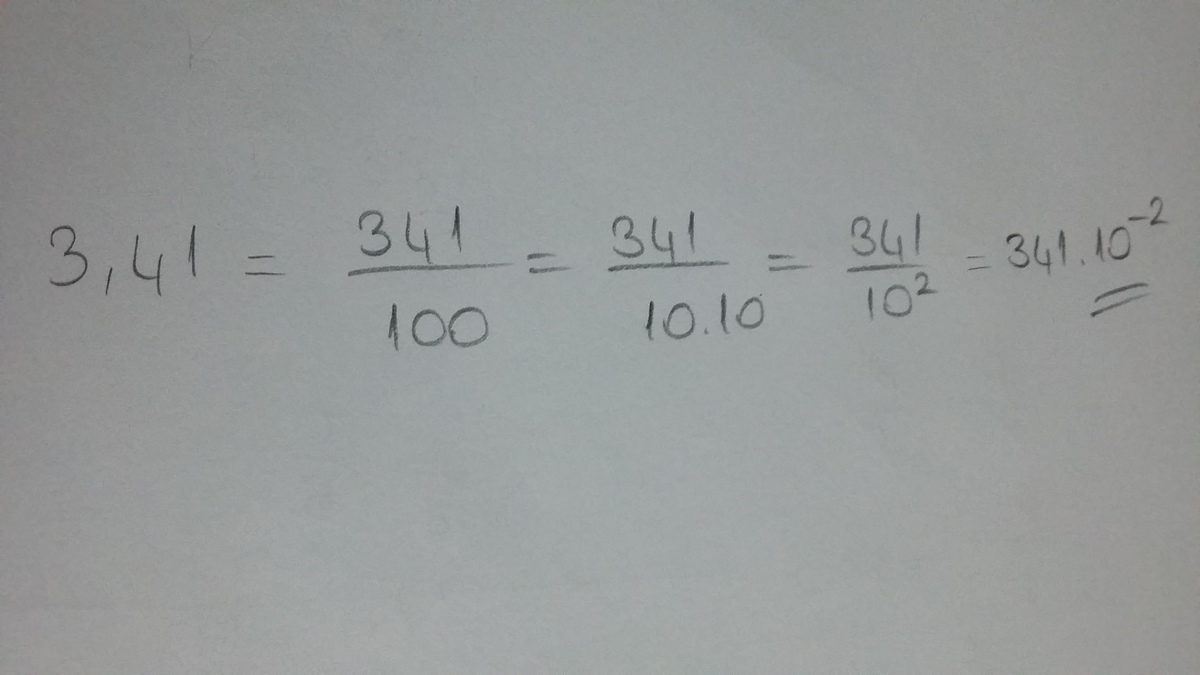 3,41 = 341/100 = 341/10.10 = 341/10² = 341.10⁻²